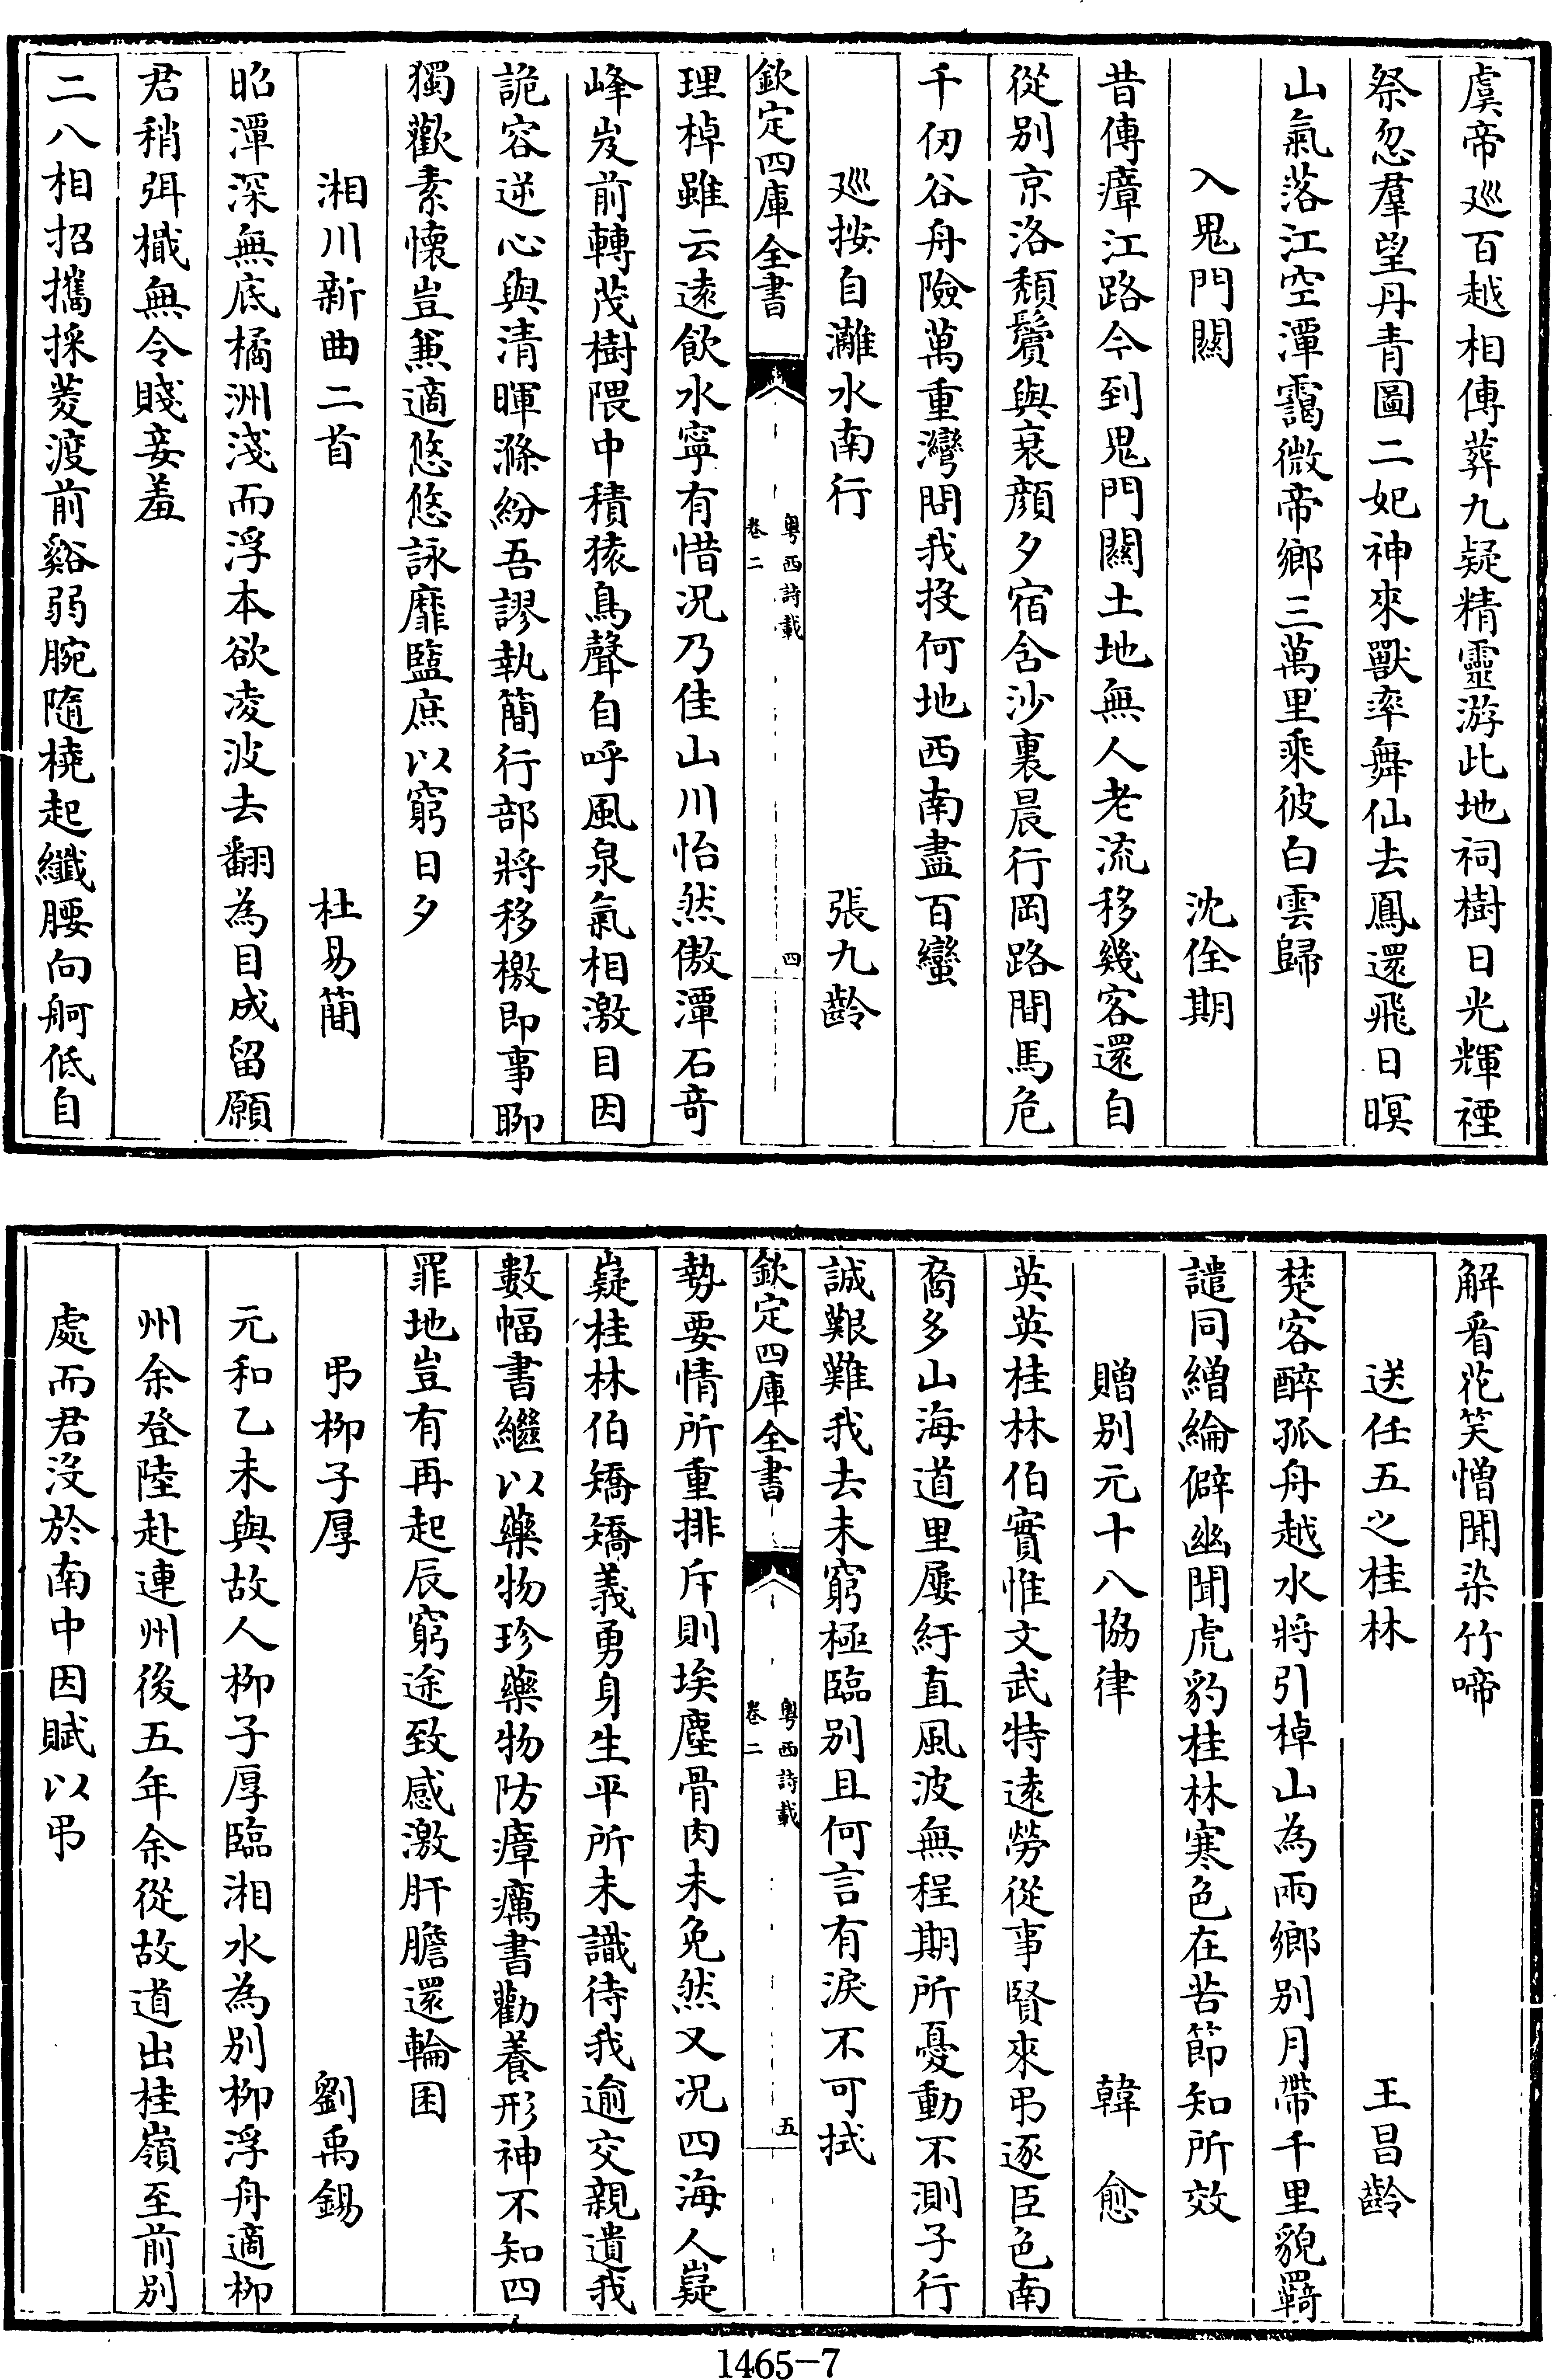 虞帝廵百越相傳葬九疑精靈游此地祠樹日光輝禋
祭忽羣望丹青圖二妃神來獸率舞仙去鳳還飛日暝
山氣落江空潭靄微帝鄉三萬里乘彼白雲歸
入鬼門關　沈佺期
昔傳瘴江路今到鬼門關土地無人老流移幾客還自
從别京洛頽鬢與衰顔夕宿含沙裏晨行岡路間馬危
千仞谷舟險萬重灣問我投何地西南盡百蠻
廵按自灕水南行　張九齡
欽定四庫全書　粤西詩載　卷二　四
理棹雖云逺飲水寧有惜况乃佳山川怡然傲潭石竒
峰岌前轉茂樹隈中積猿鳥聲自呼風泉氣相激目因
詭容逆心與清暉滌紛吾謬執簡行部將移檄即事聊
獨歡素懷豈兼適悠悠詠靡盬庶以窮日夕
湘川新曲二首　杜易簡
昭潭深無底橘洲淺而浮本欲凌波去翻為目成留願
君稍弭檝無令賤妾羞
二八相招攜採菱渡前谿弱腕隨橈起纖腰向舸低自
解看花笑憎聞染竹啼
送任五之桂林　王昌齡
楚客醉孤舟越水將引棹山為兩鄉别月帶千里貌羇
譴同繒綸僻幽聞虎豹桂林寒色在苦節知所效
贈别元十八協律　韓愈
英英桂林伯實惟文武特逺勞從事賢來弔逐臣色南
裔多山海道里屢紆直風波無程期所憂動不測子行
誠艱難我去未窮極臨别且何言有淚不可拭
欽定四庫全書　粤西詩載　卷二　五
勢要情所重排斥則埃塵骨肉未免然又况四海人嶷
嶷桂林伯矯矯義勇身生平所未識待我逾交親遺我
數幅書繼以藥物珍藥物防瘴癘書勸養形神不知四
罪地豈有再起辰窮途致感激肝膽還輪囷
弔栁子厚　劉禹錫
元和乙未與故人栁子厚臨湘水為别栁浮舟適栁
州余登陸赴連州後五年余從故道出桂嶺至前别
處而君沒於南中因賦以弔
1465-7